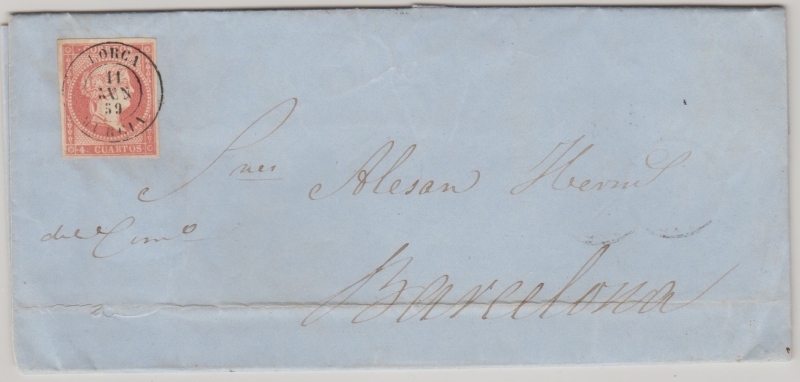 LORCA
11
JUN
59
MURCIA
4 CUARTOS
Sres Alesan Herms
del Com.o
Barcelona